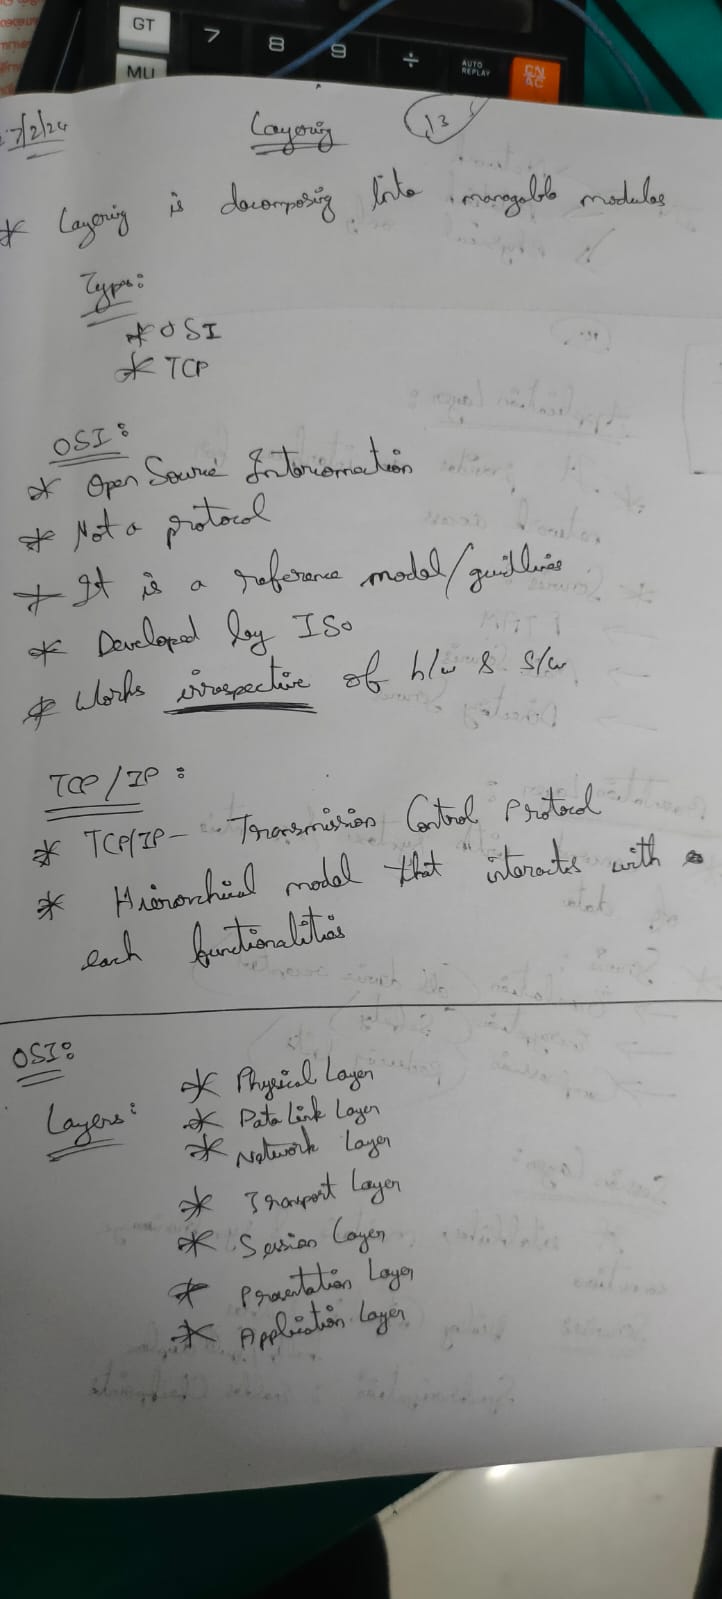 GT
MU
7 8 9 ÷
AUTO
REPLAY
7/2/24
Layering
13
* Layering is decomposing into managable modules
Types:
* OSI
* TCP
OSI:
* Open Source Interconnection
* Not a protocol
* It is a reference model/guidlines
* Developed by ISO
* Works irrespective of h/w & s/w
TCP/IP:
* TCP/IP - Transmission Control Protocol
* Hierarchical model that interacts with
each functionalities
OSI:
Layers:
* Physical Layer
* Data Link Layer
* Network Layer
* Transport Layer
* Session Layer
* Presentation Layer
* Application Layer